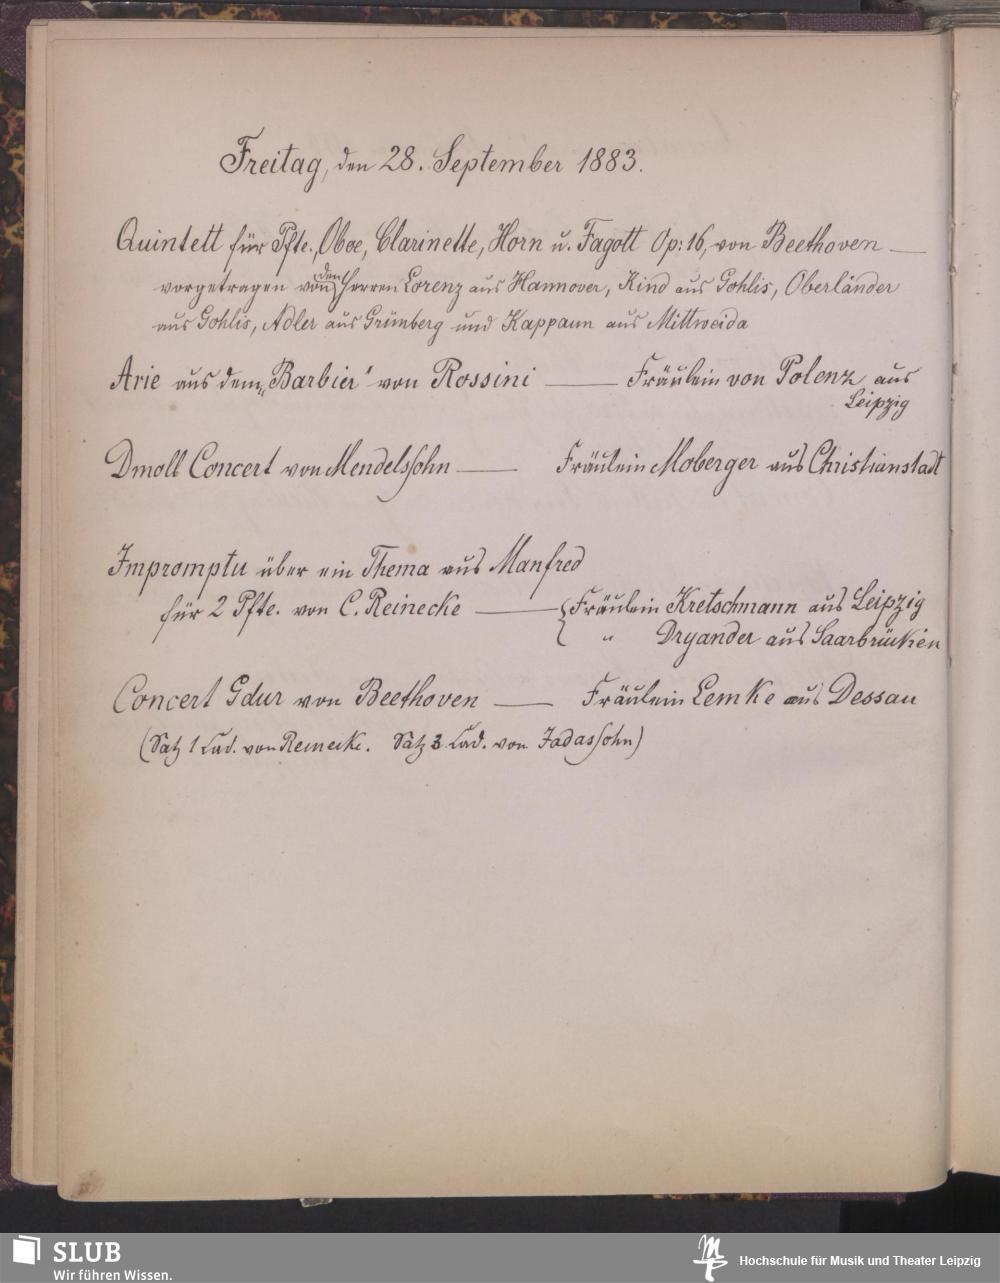 Freitag, den 28. September 1883.
Quintett für Pfte., Oboe, Clarinette, Horn u. Fagott Op: 16, von Beethoven —
vorgetragen von den Herren Lorenz aus Hannover, Kind aus Gohlis, Oberländer
aus Gohlis, Adler aus Grünberg und Kappaun aus Mittweida
Arie aus dem „Barbier" von Rossini — Fräulein von Polenz aus
Leipzig
Dmoll Concert von Mendelssohn — Fräulein Moberger aus Christianstadt
Impromptu über ein Thema aus Manfred
für 2 Pfte. von C. Reinecke — { Fräulein Kretschmann aus Leipzig
" Dryander aus Saarbrücken
Concert Gdur von Beethoven — Fräulein Lemke aus Dessau
(Satz 1 Cad. von Reinecke. Satz 3 Cad. von Jadassohn)
SLUB
Wir führen Wissen.
Hochschule für Musik und Theater Leipzig